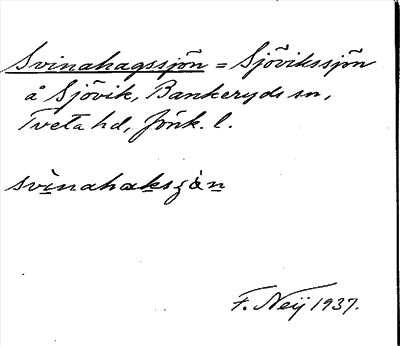 Svinahagssjön = Sjövikssjön
å Sjövik, Bankeryds sn,
Tveta hd, Jönk. l.
svinahaksjàn
F. Neij 1937.